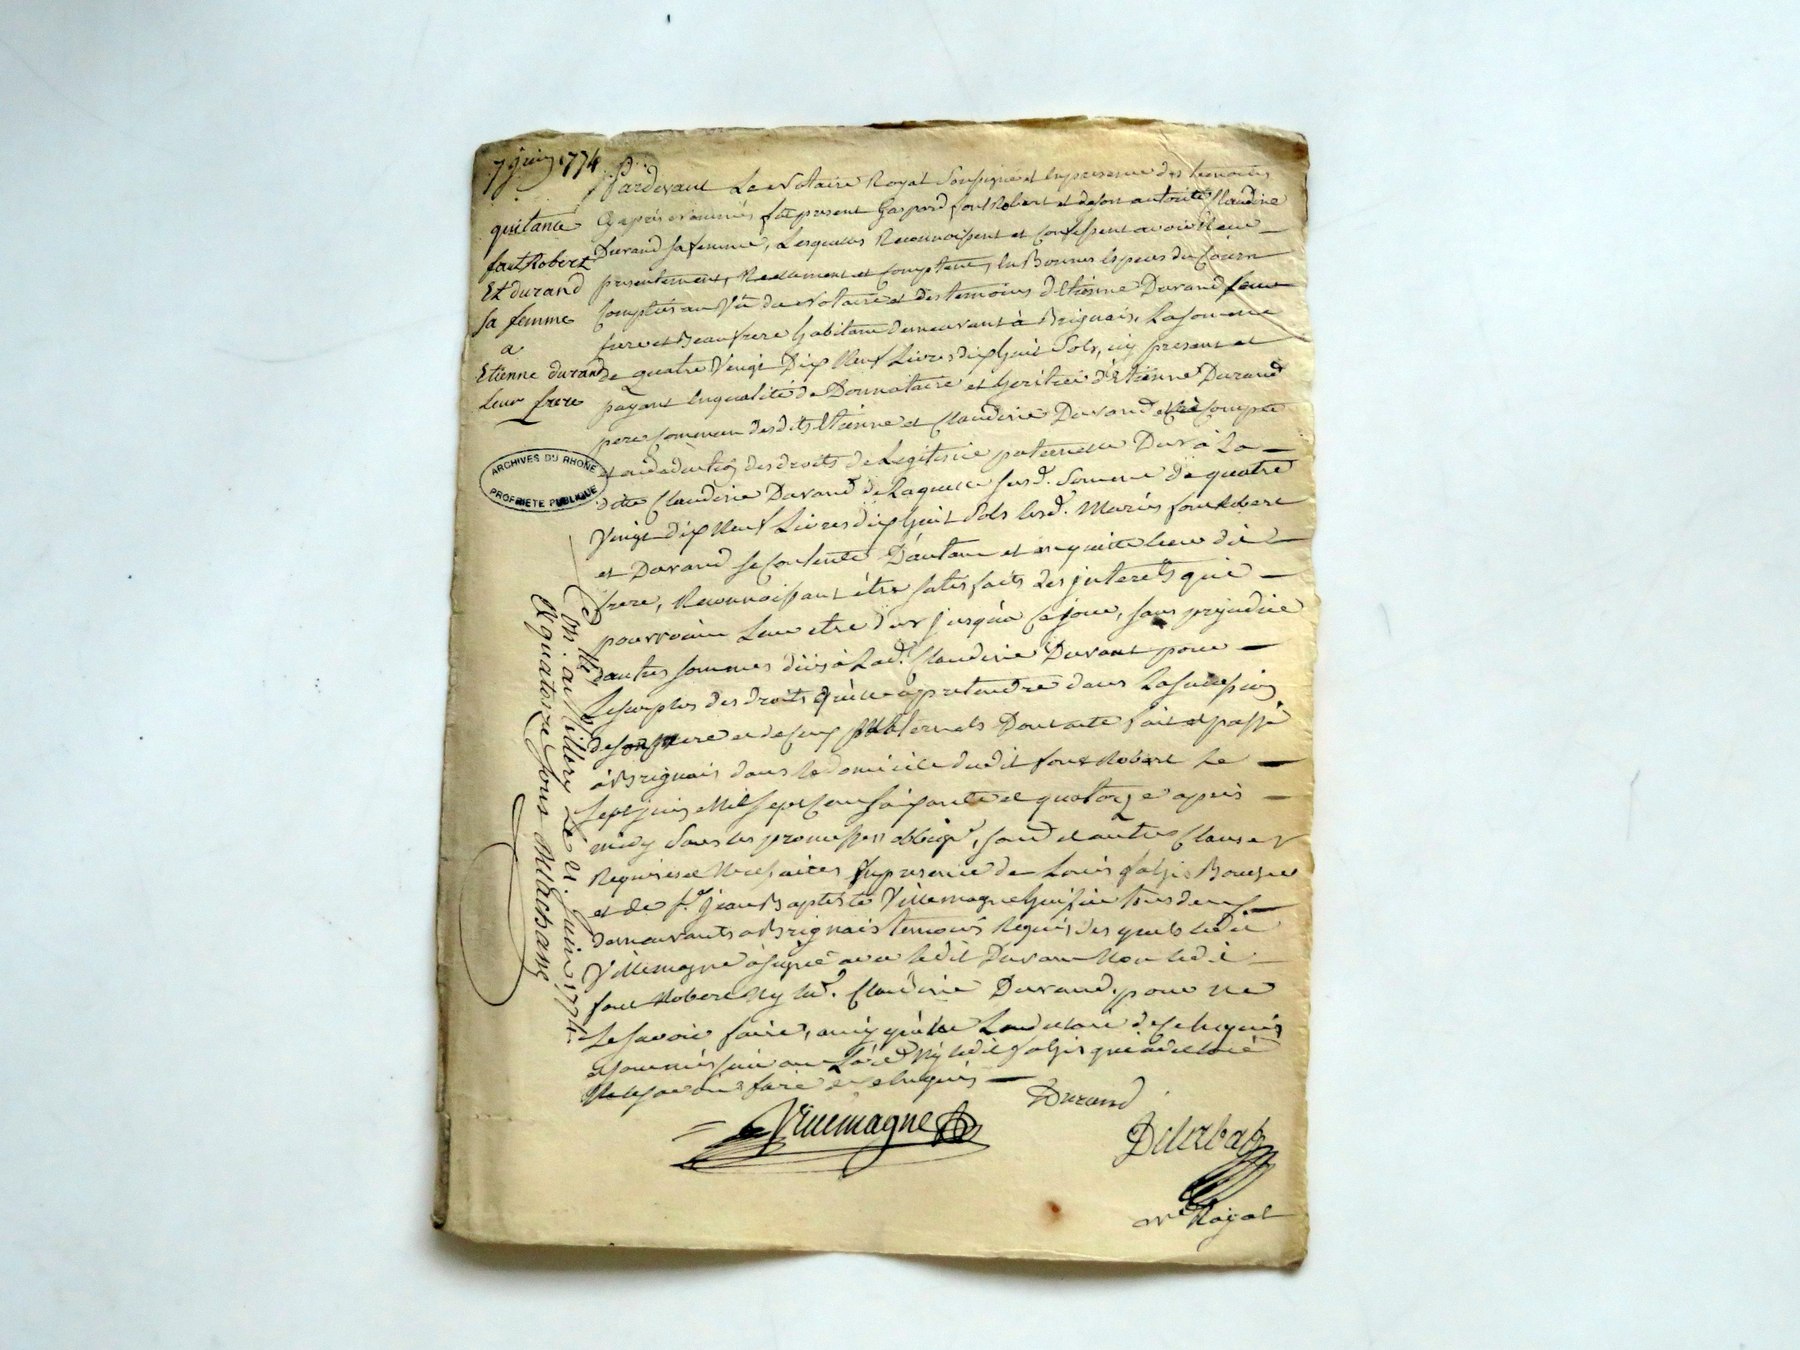 7 juin 1774
quitance
fontRobert
Et durand
sa femme
a
Etienne durand
leur frere
ARCHIVES DU RHONE
PROPRIETE PUBLIQUE
Pardevant Le Notaire Royal soussigné et En presence des temoins
Cy après nommés fut present Gaspard fontRobert et de son autorité Claudine
Durand sa femme, Lesquels Reconnoissent et Confessent avoir Reçu
presentement, Reellement et Comptant, En Bonnes Especes du Cours
Comptées au Vû du Notaire et des temoins d'Etienne Durand leur
frere et Beaufrere habitant demeurant à Brignais, La somme
de quatre Vingt Dix Neuf Livres dix huit Sols, icy present et
payant En qualité de Donnataire et heritier d'Etienne Durand
pere commun desdits Etienne et Claudine Durand et à Compte
et en déduction des droits de Legitime paternelle Dus à La
dite Claudine Durand de Laquelle susd. Somme de quatre
Vingt Dix Neuf Livres dix huit Sols lesd. Mariés fontRobert
et Durand se Contente D'autant et en quitte leur dit
frere, Reconnoissant être satisfaits des jnterets qui
pourroient Leur etre dus jusqu'à Ce jour, sans prejudice
dautres sommes dües à Lad. Claudine Durant pour
Le surplus des droits qu'elle a pretendre dans La succession
de son pere et de ceux Maternels Dont acte fait et passé
à Brignais dans le domicile dudit font Robert Le
sept juin Mil sept Cent soixante et quatorze après
midy sous les promesses obligé, soud et autres Clauses
Requises et Necessaires En presence de Louis
et de sr. Jean Baptiste Villemagne tous deux
demeurants à Brignais temoins Requis, des quels ledit
Villemagne à signé avec ledit Durand Non ledit
font Robert Ny lad. Claudine Durand, pour ne
Le savoir faire, ainsy qu'ils L'ont declaré de ce Enquis
Ny ledit qui a declaré
Ne le savoir faire de ce Enquis
Durand
Villemagne
Delorbat
Nre Royal
Con. au Millery Le 21 juin 1774
R quatorze sous